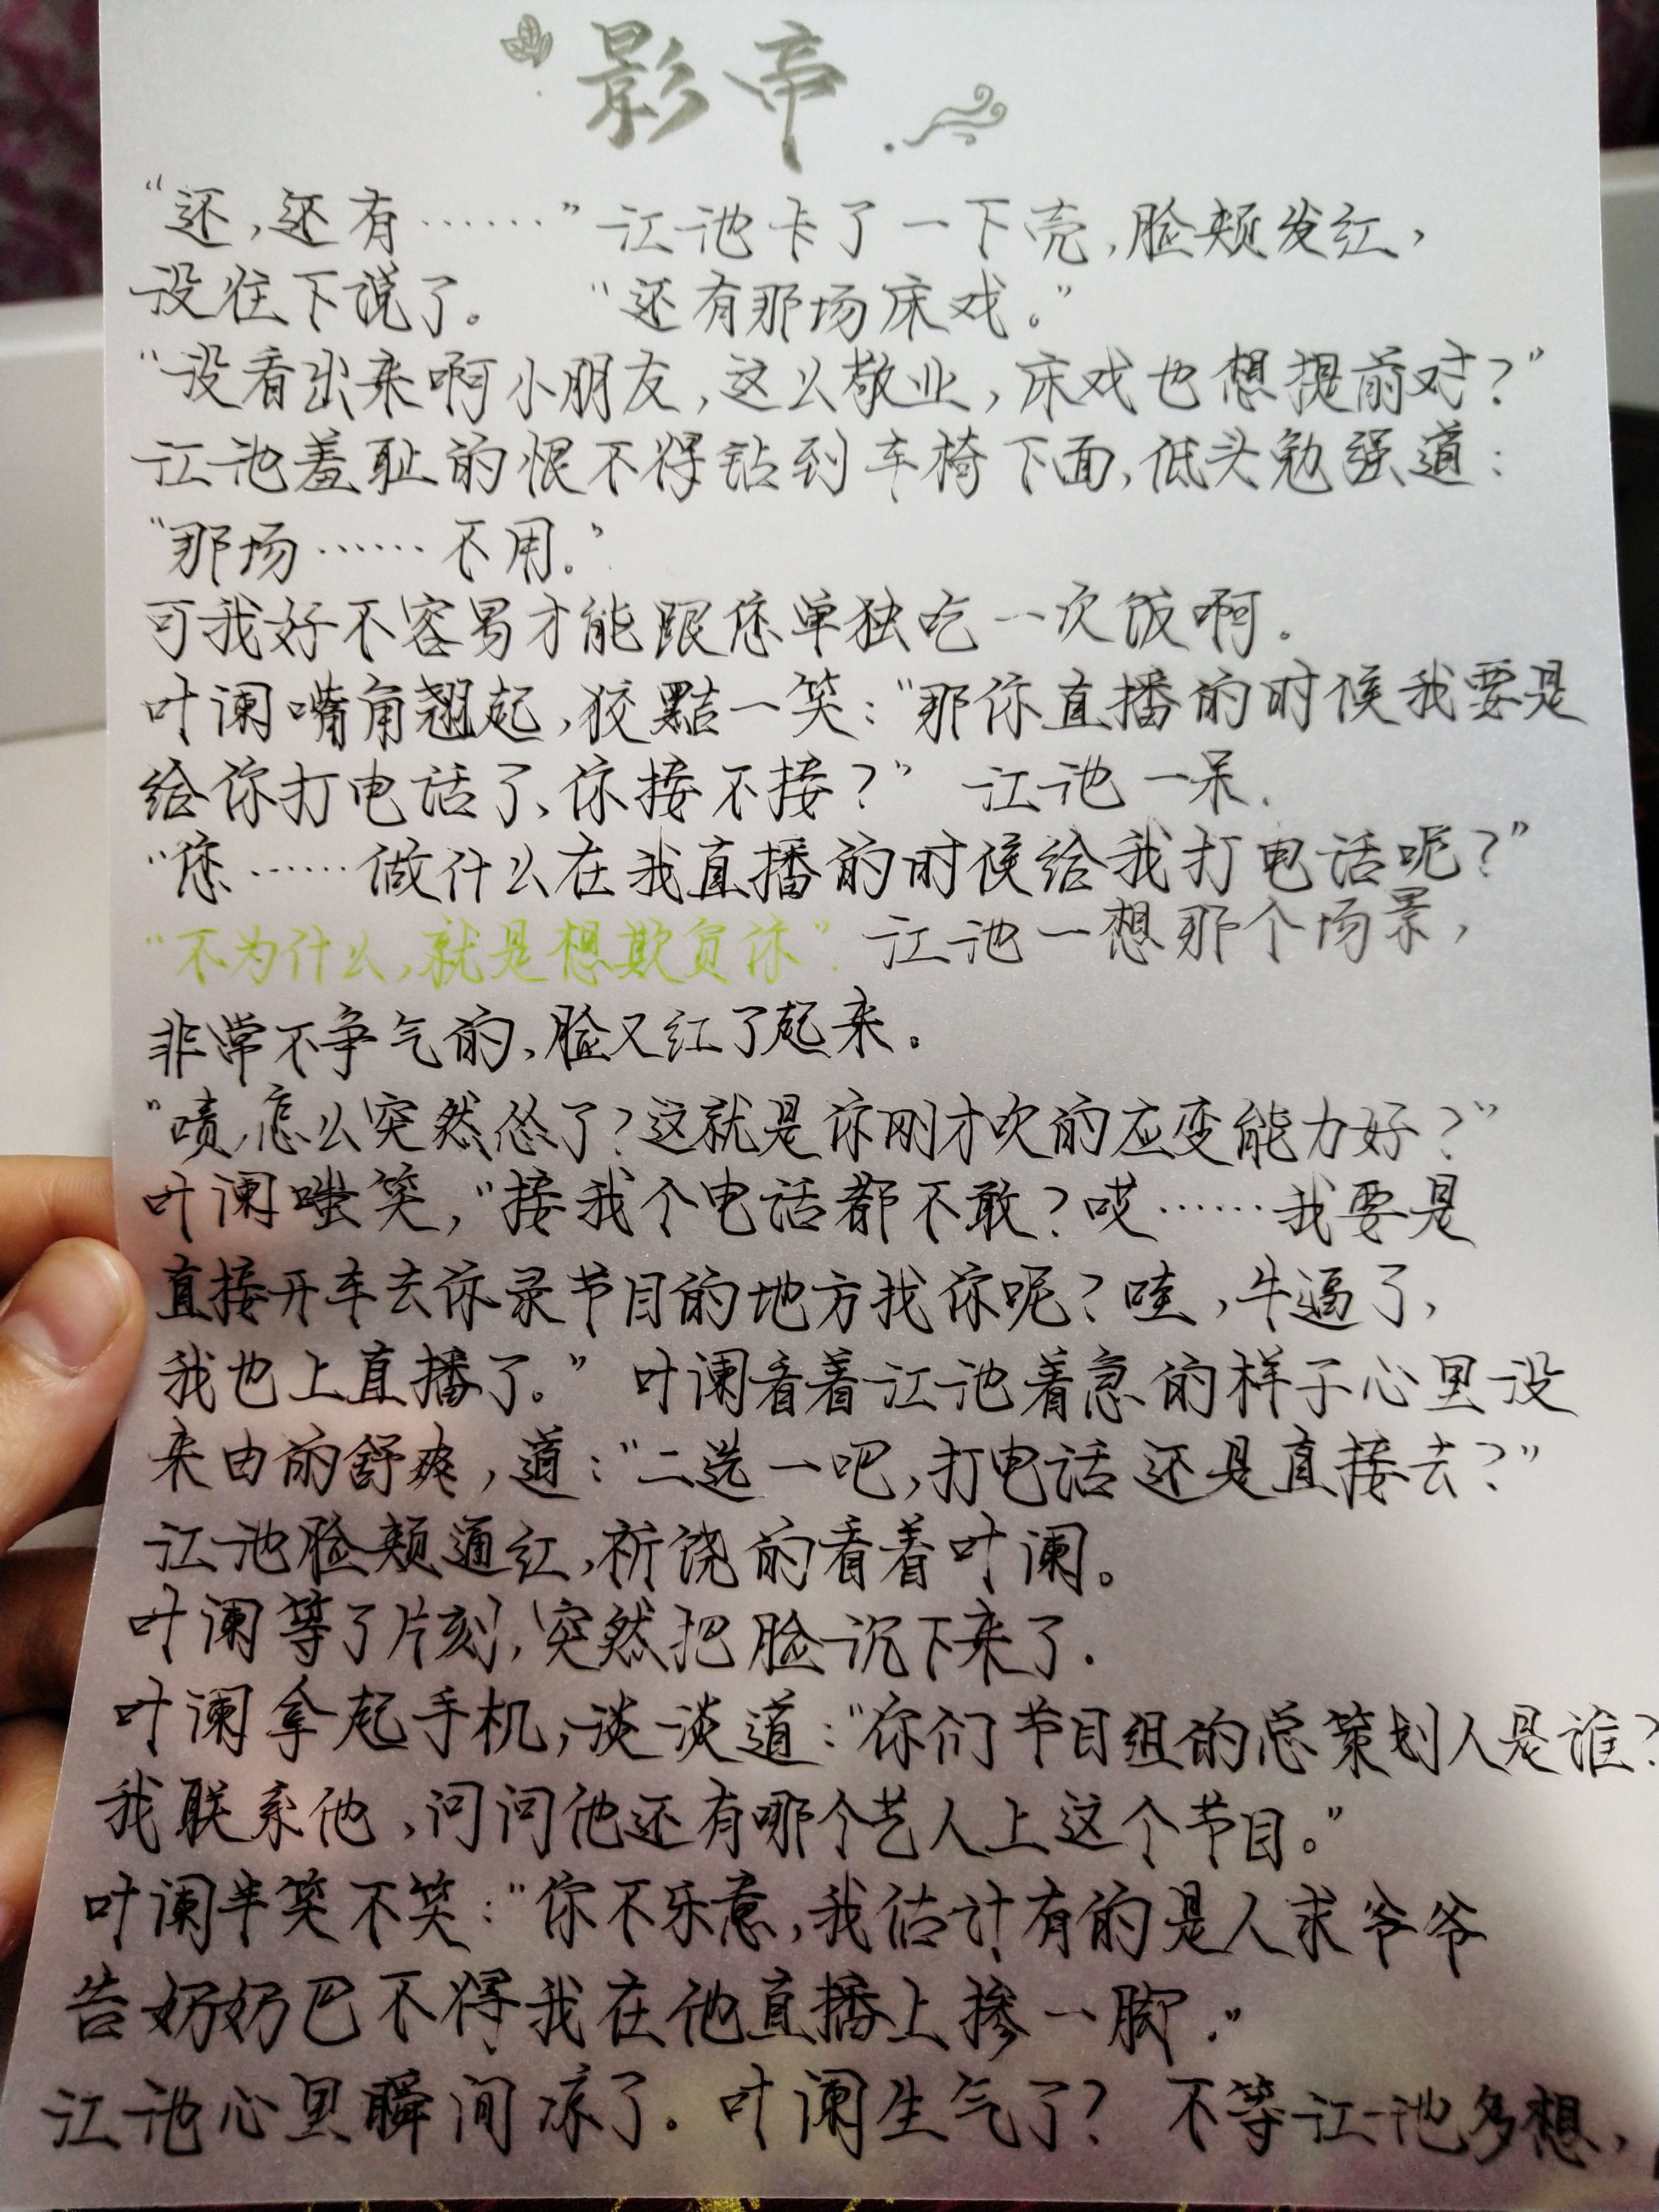 影帝
“还,还有……”江池卡了一下壳,脸颊发红,
没往下说了。 “还有那场床戏。”
“没看出来啊小朋友,这么敬业,床戏也想提前对?”
江池羞耻的恨不得钻到车椅下面,低头勉强道:
“那场……不用。”
可我好不容易才能跟您单独吃一次饭啊.
叶阑嘴角翘起,狡黠一笑:“那你直播的时候我要是
给你打电话了,你接不接?” 江池一呆.
“您……做什么在我直播的时候给我打电话呢?”
“不为什么,就是想欺负你”. 江池一想那个场景,
非常不争气的,脸又红了起来。
“啧,怎么突然怂了?这就是你刚才吹的应变能力好?”
叶阑嗤笑,“接我个电话都不敢?哎……我要是
直接开车去你录节目的地方找你呢?哇,牛逼了,
我也上直播了。” 叶阑看着江池着急的样子心里没
来由的舒爽,道:“二选一吧,打电话还是直接去?”
江池脸颊通红,祈饶的看着叶阑。
叶阑等了片刻,突然把脸沉下来了.
叶阑拿起手机,谈谈道:“你们节目组的总策划人是谁?
我联系他,问问他还有哪个艺人上这个节目。”
叶阑半笑不笑:“你不乐意,我估计有的是人求爷爷
告奶奶巴不得我在他直播上掺一脚.”
江池心里瞬间凉了. 叶阑生气了? 不等江池多想,